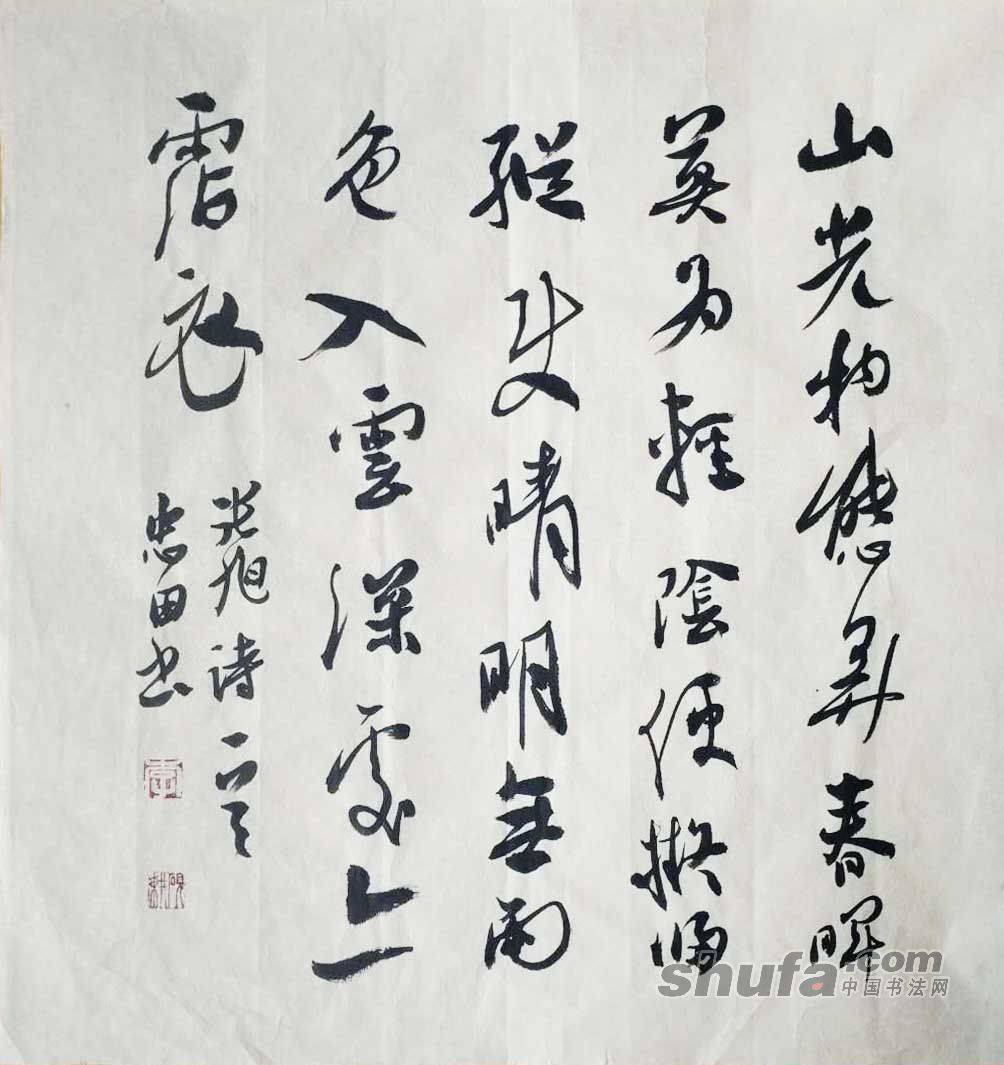 山光物態弄春暉
莫為輕陰便擬歸
縱使晴明無雨
色入雲深處上
霑衣
張旭詩一首
忠田書
shufa.com
中国书法网